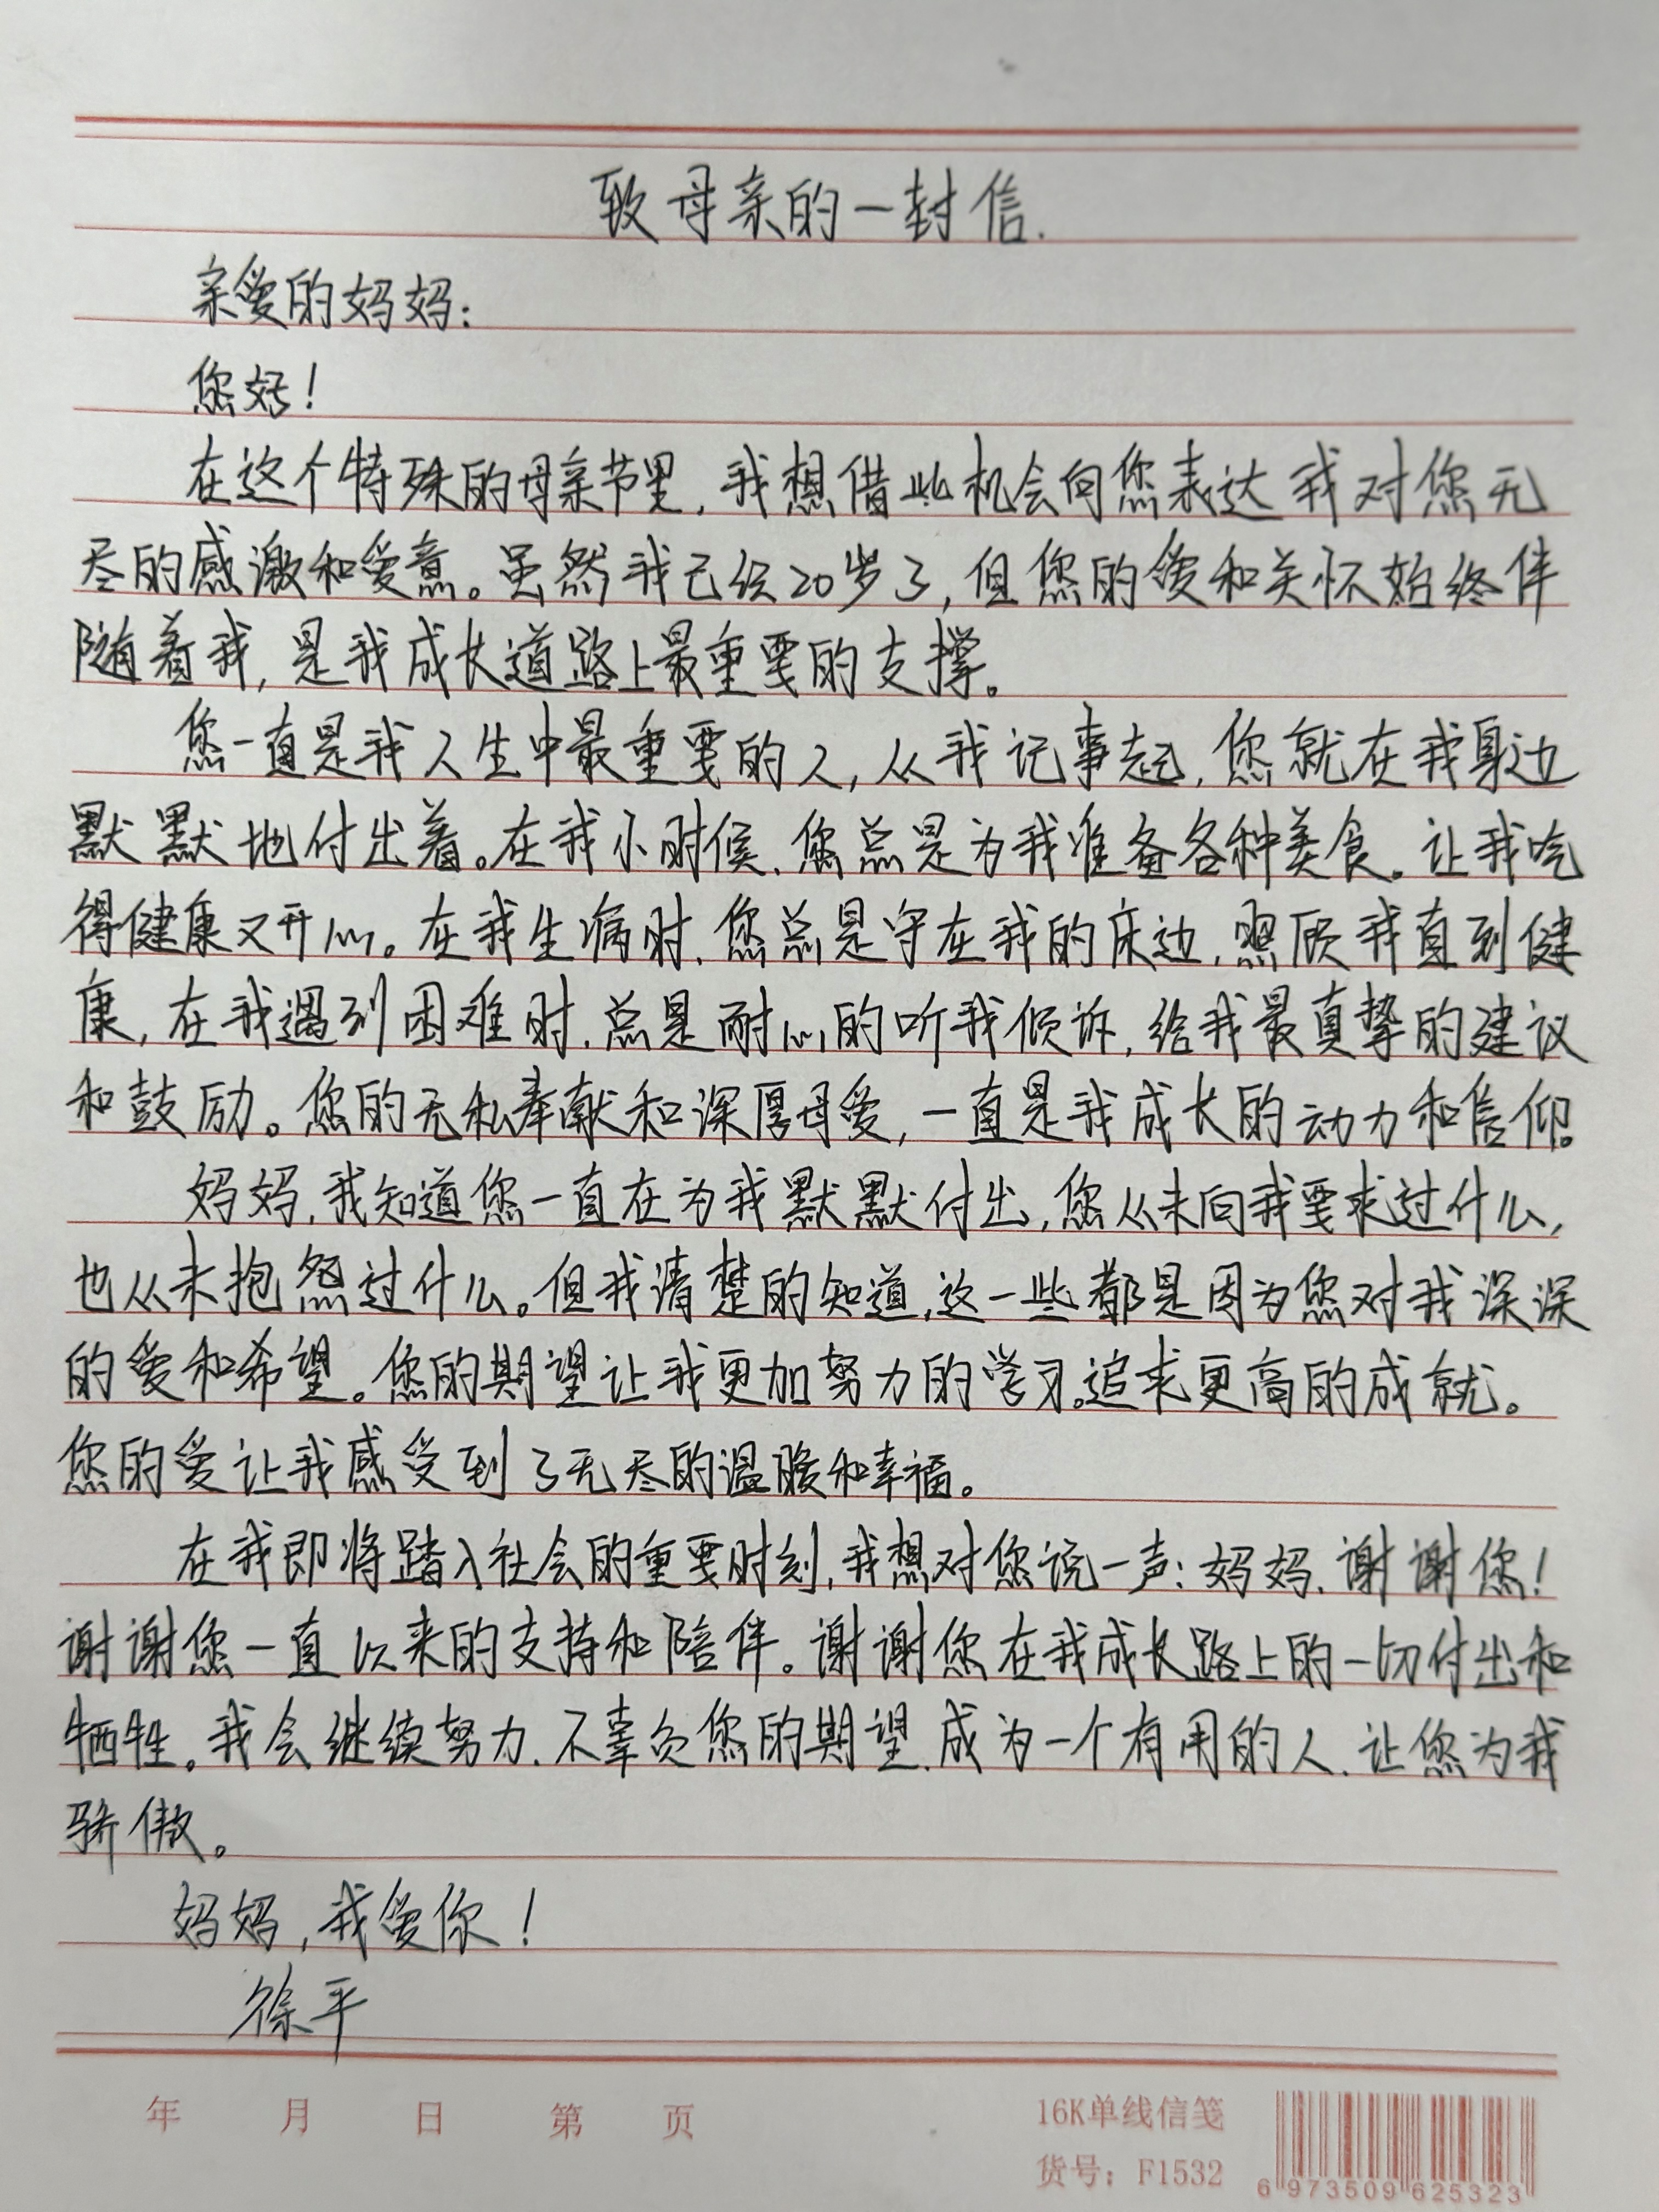 致母亲的一封信.
亲爱的妈妈:
您好!
在这个特殊的母亲节里,我想借此机会向您表达我对您无
尽的感激和爱意。虽然我已经20岁了,但您的爱和关怀始终伴
随着我,是我成长道路上最重要的支撑。
您一直是我人生中最重要的人,从我记事起,您就在我身边
默默地付出着。在我小时候,您总是为我准备各种美食。让我吃
得健康又开心。在我生病时,您总是守在我的床边,照顾我直到健
康,在我遇到困难时,总是耐心的听我倾诉,给我最真挚的建议
和鼓励。您的无私奉献和深厚母爱,一直是我成长的动力和信仰。
妈妈,我知道您一直在为我默默付出,您从未向我要求过什么,
也从未抱怨过什么。但我清楚的知道,这一些都是因为您对我深深
的爱和希望。您的期望让我更加努力的学习。追求更高的成就。
您的爱让我感受到了无尽的温暖和幸福。
在我即将踏入社会的重要时刻,我想对您说一声:妈妈,谢谢您!
谢谢您一直以来的支持和陪伴。谢谢您在我成长路上的一切付出和
牺牲。我会继续努力,不辜负您的期望,成为一个有用的人,让您为我
骄傲。
妈妈,我爱你!
徐平
年 月 日 第 页
16K单线信笺
货号: F1532
6 973509 625323